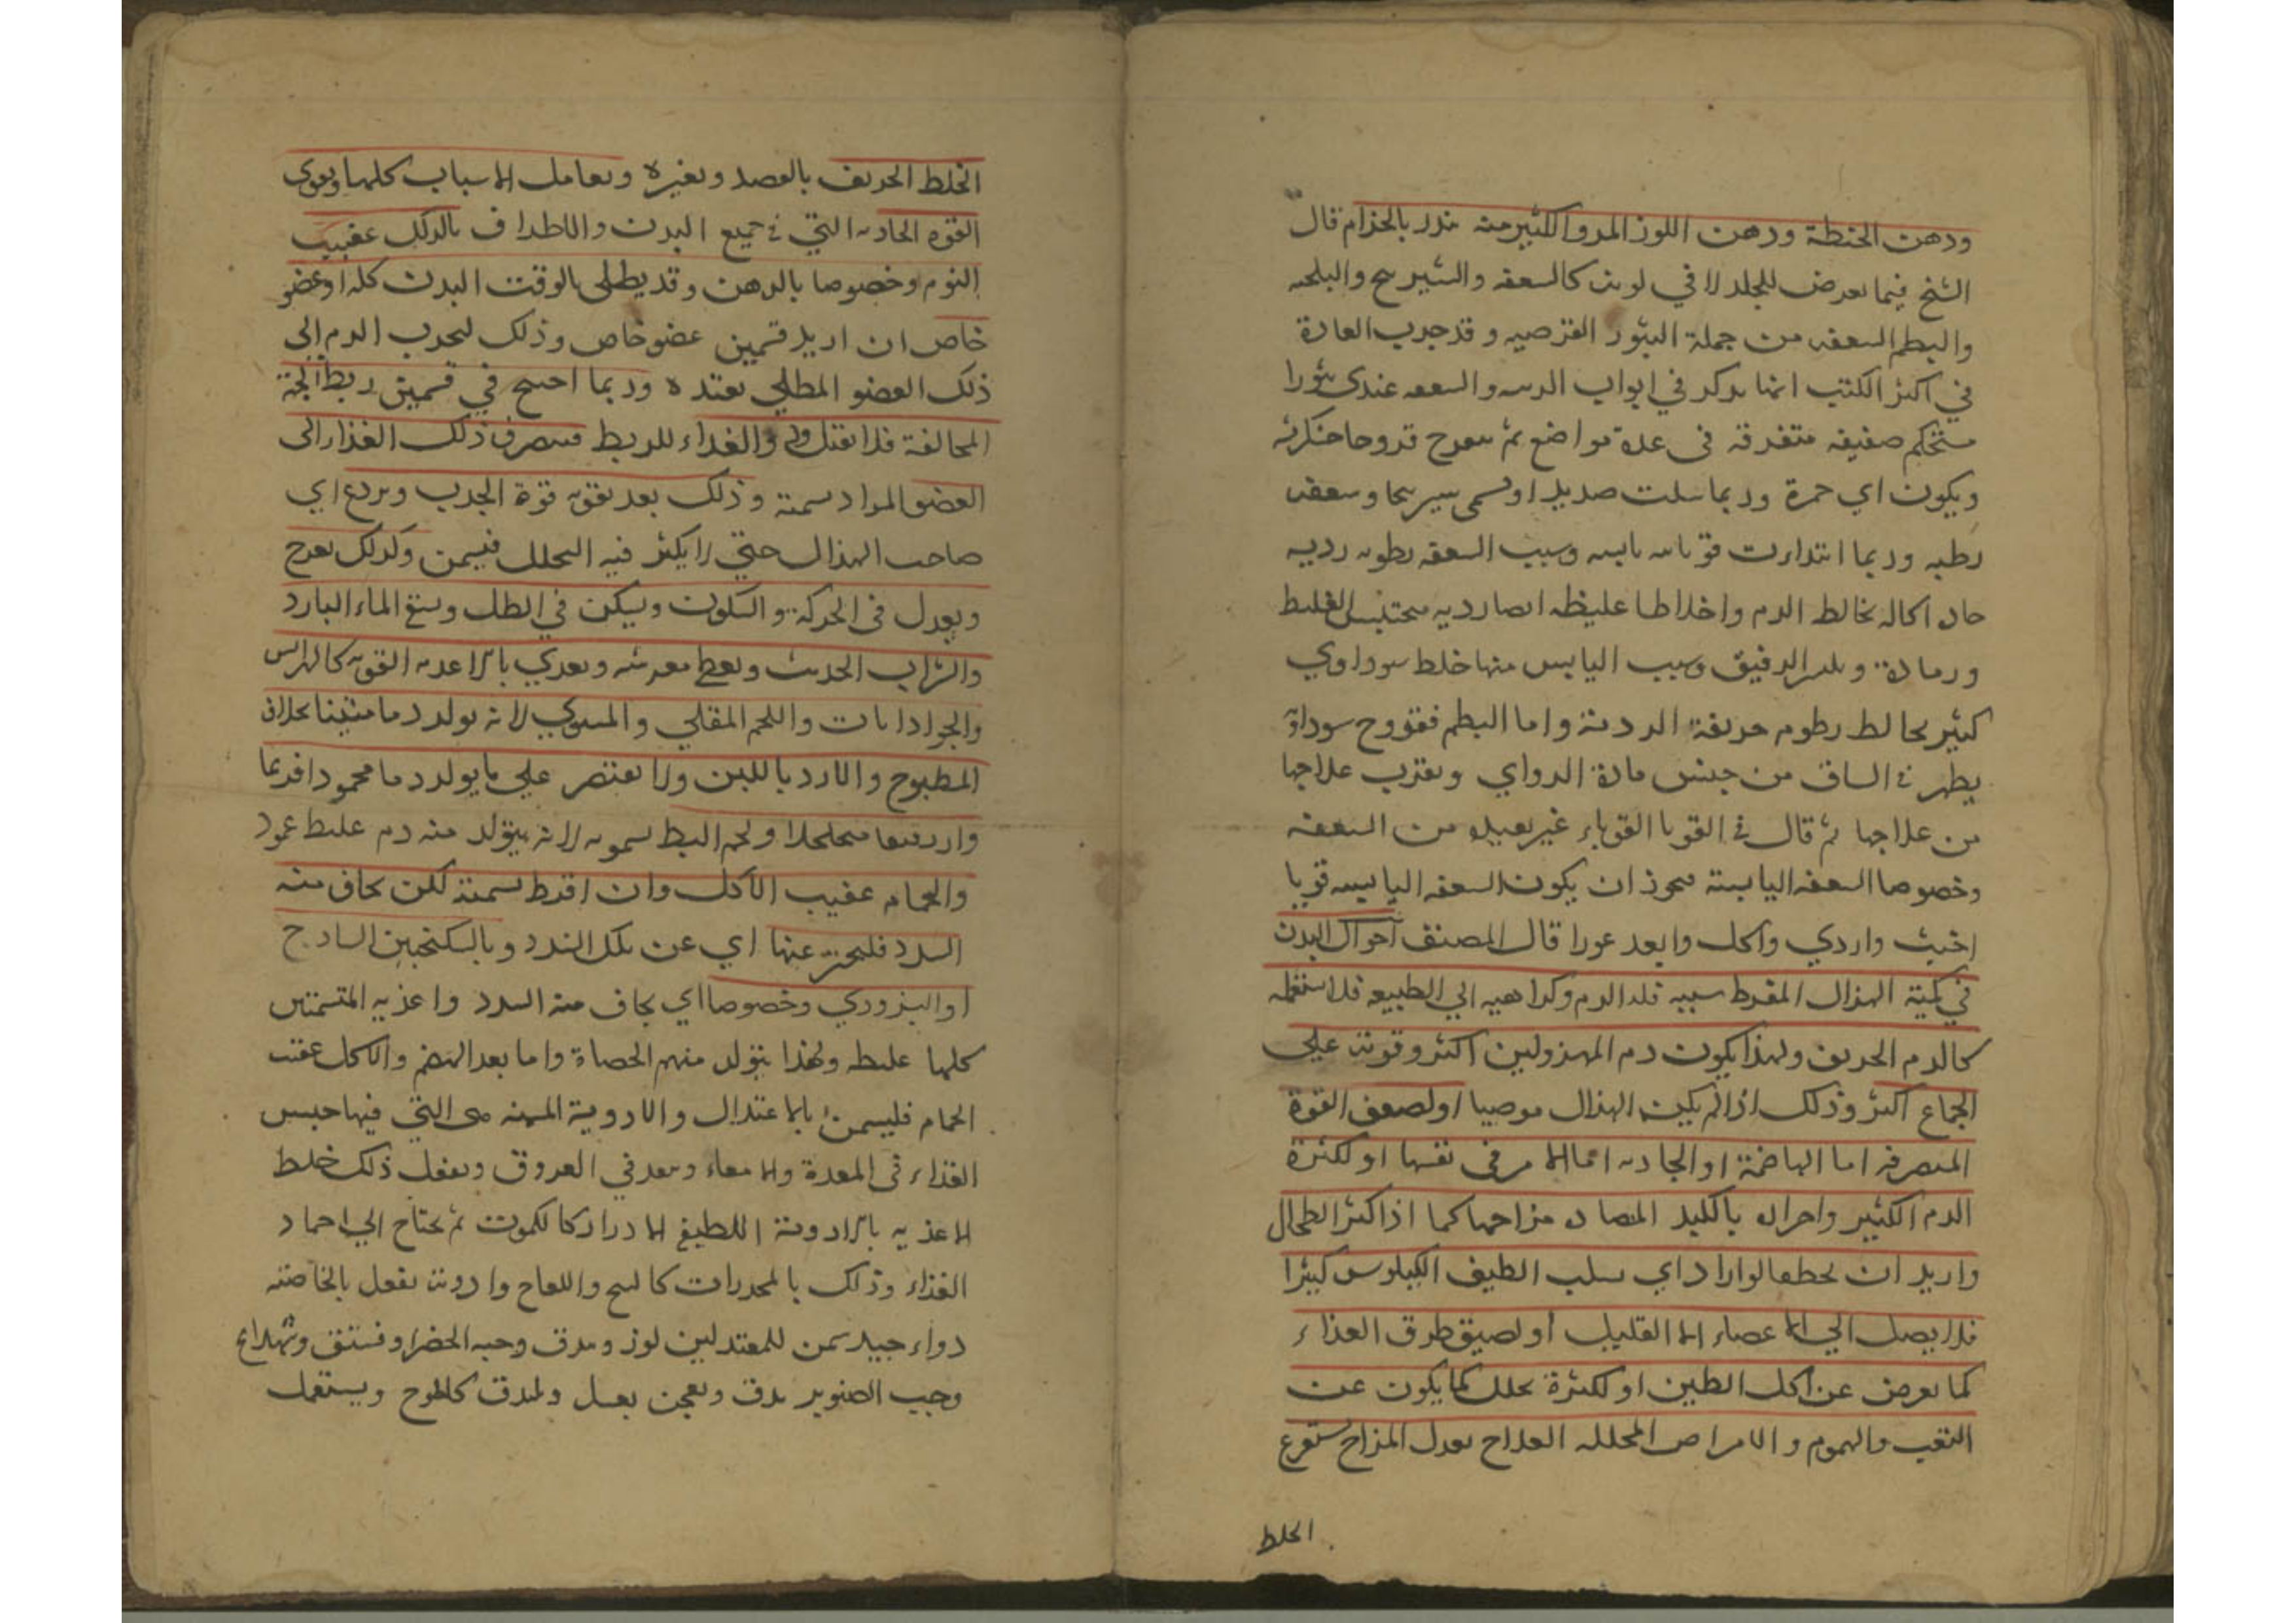 ودهن الحنطة ودهن اللوز المر والكثير منه منذر بالجذام قال
الشيخ فيما يعرض للجلد لا في لونه كالسعفه والشيرينج والبلخيه
والبطم السعفه من جملة البثور القرصيه وقد جرب العادة
في اكثر الكتب انما يذكر في ابواب الراس والسعفه عندى بثورا
متحكم صغيفه متفرقه فى عدة مواضع ثم يتقرح قروحا خنكريشه
ويكون اي حمرة وربما سلت صديدا وتسمى سيرنجا وسعفه
رطبه وربما ابتداءت قوبائيه يابسه وسبب السعفه رطوبه رديه
حاده اكاله تخالط الدم واخلاطا غليظه ايضا رديه محتبس الغليظ
ورمادة الرقيق وسبب اليابس منها خلط سوداوي
كثير يخالط رطوبه حريفة الردئة واما البطم فقروح سوداة
يظهر فى الساق من جنس مادة الدوالي ويقرب علاجها
من علاجها ثم قال في القوبا القوباء غير بعيده من السعفه
وخصوصا السعفه اليابسة يجوز ان يكون السعفه اليابسه قوبا
اخبث واردي واكل وابعد غورا قال المصنف احوال البدن
في كمية الهزال المفرط سببه قلة الدم وكراهيه الي الطبيعه فلا تستعمله
كالدم الحريف ولهذا يكون دم المهزولين اكثر وقوته علي
الجماع اكثر وذلك اذا لم يكن الهزال موصبيا او لضعف القوة
المتصرفه اما الهاضمة او الجاذبه اما لامر في نفسها او لكثرة
الدم الكثير واحراره بالكبد المضاده مزاحمها كما اذا كثر الطحال
واريد ان يحطفا الوارد اي سلب الطيف الكيلوس كثيرا
فلا يصل الي الاعضاء الا القليل او لضيق طرق الغذاء
كما يعرض عن اكل الطين او لكثرة تحلل كما يكون عن
التعب والهموم والامراض المحلله العلاج يعدل المزاج يستفرغ
الخلط
الخلط الحريف بالفصد وبغيره ويعامل الاسباب كلها ويقوى
القوه الجاذبه التي في جميع البدن والاطراف بالدلك عقيب
النوم وخصوصا بالدهن وقد يطلى بالوقت البدن كله او عضو
خاص ان اريد تسمين عضو خاص وذلك لجذب الدم الى
ذلك العضو المطلي بعقده وربما احتيج في تسمين ربط الجهة
المخالفة فلا يقبل والغذاء للربط فينصرف ذلك الغذاء الى
العضو المراد سمنة وذلك بعد تقويه قوة الجذب ويردع اي
صاحب الهزال حتي لا يكثر فيه التحلل فيسمن وكذلك يفرح
ويعدل فى الحركة والسكون ويسكن في الظل ويسقي الماء البارد
والشراب الحديث ويعطي معرشه ويغدي بالاغديه القويه كالهرايس
والجواذابات واللحم المقلي والمشوي لانه يولد دما متينا بخلاف
المطبوخ والارز باللبن ولا يقتصر علي ما يولد دما محمودا فربما
متخلخلا ولحم البط سمونه لانه يتولد منه دم غليط
والحمام عقيب الاكل وان افرط سمنة لكن يخاف منه
السدد فليحترز عنها اي عن تلك السدد وبالسكنجبين السادج
او البزوري وخصوصا اي يخاف منه السدد واغذيه المتسمنين
كلها غليظه ولهذا يتولد منهم الحصاة واما بعد الهضم والاكل عقب
الحمام فليسمن بالاعتدال والادوية المسمنه هى التي فيها حبس
الغذاء فى المعدة والامعاء وبعد في العروق ويفعل ذلك خلط
الاغذيه بالادوية اللطيفة الادرار كالكمون ثم يحتاج الي اجماد
الغذاء وذلك بالمخدرات كالبنج واللفاح وادويه يفعل بالخاصته
دواء جيد يسمن للمعتدلين لوز وبندق وحبه الخضرا وفستق وشهدانج
وحب الصنوبر يدق ويعجن بعسل ويبندق كالجوز ويستعمل